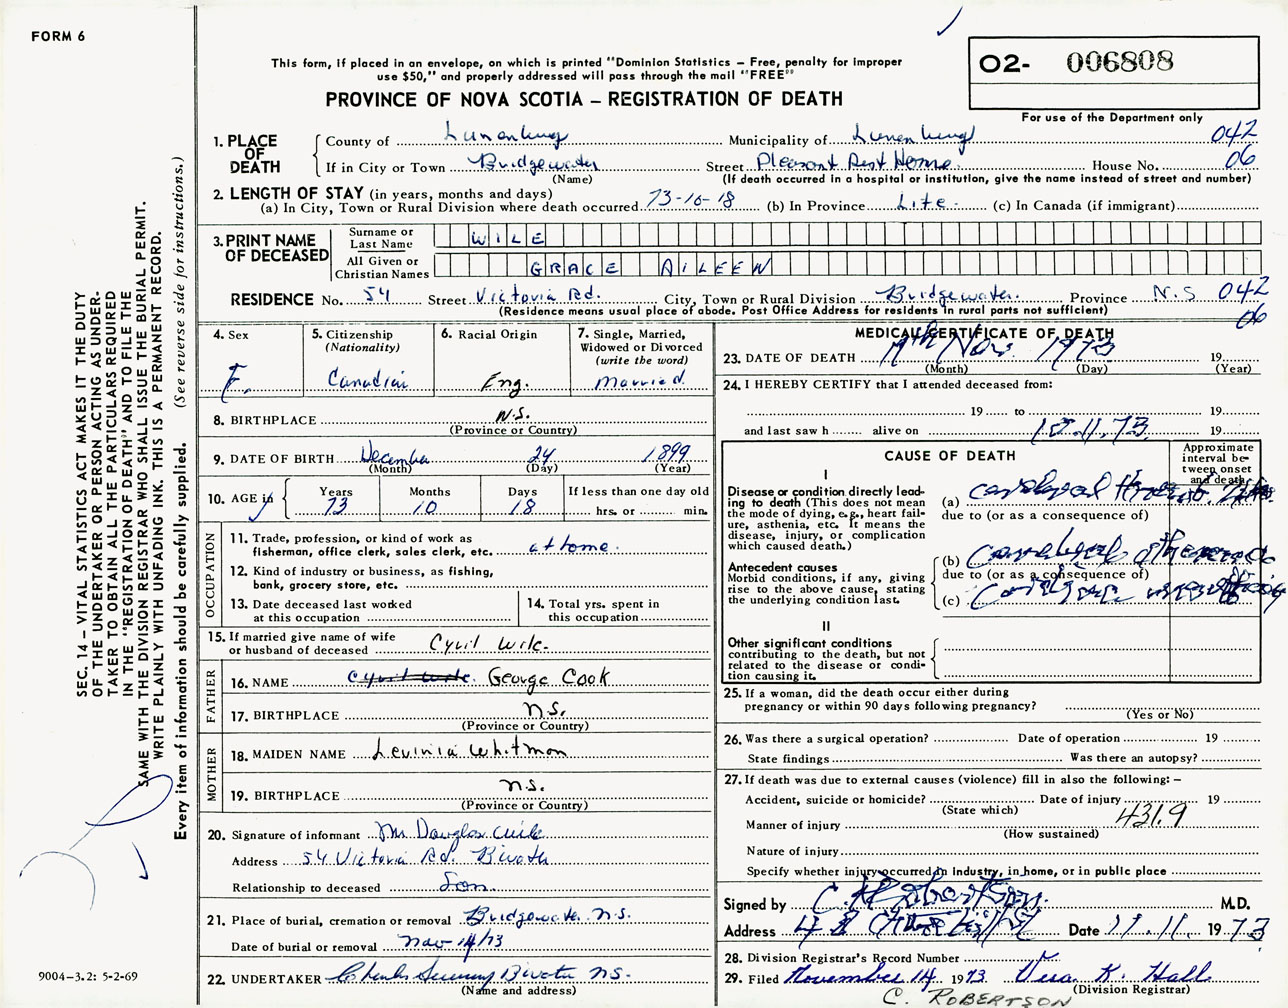 FORM 6
This form, if placed in an envelope, on which is printed "Dominion Statistics – Free, penalty for improper
use $50," and properly addressed will pass through the mail "FREE"
O2- 006808
PROVINCE OF NOVA SCOTIA – REGISTRATION OF DEATH
For use of the Department only
1. PLACE OF DEATH
County of Lunenburg Municipality of Lunenburg 042
If in City or Town Bridgewater Street Pleasant Rest Home House No. 06
(Name) (If death occurred in a hospital or institution, give the name instead of street and number)
2. LENGTH OF STAY (in years, months and days)
(a) In City, Town or Rural Division where death occurred 73-10-18 (b) In Province Life (c) In Canada (if immigrant)
3. PRINT NAME OF DECEASED
Surname or Last Name WILE
All Given or Christian Names GRACE AILEEN
RESIDENCE No. 54 Street Victoria Rd. City, Town or Rural Division Bridgewater Province N.S 042
(Residence means usual place of abode. Post Office Address for residents in rural parts not sufficient) 06
4. Sex
F.
5. Citizenship
(Nationality)
Canadian
6. Racial Origin
Eng.
7. Single, Married,
Widowed or Divorced
(write the word)
Married
8. BIRTHPLACE N.S.
(Province or Country)
9. DATE OF BIRTH December 24 1899
(Month) (Day) (Year)
10. AGE in
Years Months Days If less than one day old
73 10 18 hrs. or min.
OCCUPATION
11. Trade, profession, or kind of work as
fisherman, office clerk, sales clerk, etc. at home.
12. Kind of industry or business, as fishing,
bank, grocery store, etc.
13. Date deceased last worked
at this occupation
14. Total yrs. spent in
this occupation
15. If married give name of wife
or husband of deceased Cyril Wile
FATHER
16. NAME Cyril Wile George Cook
17. BIRTHPLACE N.S.
(Province or Country)
MOTHER
18. MAIDEN NAME Levinia Whitman
19. BIRTHPLACE N.S.
(Province or Country)
20. Signature of informant Mr Douglas Wile
Address 54 Victoria Rd. B'water
Relationship to deceased Son.
21. Place of burial, cremation or removal Bridgewater N.S.
Date of burial or removal Nov 14/73
22. UNDERTAKER B'water N.S.
(Name and address)
MEDICAL CERTIFICATE OF DEATH
23. DATE OF DEATH Nov. 1973 19
(Month) (Day) (Year)
24. I HEREBY CERTIFY that I attended deceased from:
19 to 19
and last saw h alive on 11.73 19
CAUSE OF DEATH
Approximate
interval be-
tween onset
and death
I
Disease or condition directly lead-
ing to death (This does not mean
the mode of dying, e.g., heart fail-
ure, asthenia, etc. It means the
disease, injury, or complication
which caused death.)
(a) cerebral
due to (or as a consequence of)
Antecedent causes
Morbid conditions, if any, giving
rise to the above cause, stating
the underlying condition last.
(b) cerebral
due to (or as a consequence of)
(c)
II
Other significant conditions
contributing to the death, but not
related to the disease or condi-
tion causing it.
25. If a woman, did the death occur either during
pregnancy or within 90 days following pregnancy?
(Yes or No)
26. Was there a surgical operation? Date of operation 19
State findings Was there an autopsy?
27. If death was due to external causes (violence) fill in also the following: –
Accident, suicide or homicide? Date of injury 19
(State which)
Manner of injury 431.9
(How sustained)
Nature of injury
Specify whether injury occurred in Industry, in home, or in public place
Signed by C. Robertson M.D.
Address Date 11.11. 1973
28. Division Registrar's Record Number
29. Filed November 14 1973 Vera K. Hall
(Division Registrar)
C. ROBERTSON
SEC. 14 – VITAL STATISTICS ACT MAKES IT THE DUTY
OF THE UNDERTAKER OR PERSON ACTING AS UNDER-
TAKER TO OBTAIN ALL THE PARTICULARS REQUIRED
IN THE "REGISTRATION OF DEATH" AND TO FILE THE
SAME WITH THE DIVISION REGISTRAR WHO SHALL ISSUE THE BURIAL PERMIT.
WRITE PLAINLY WITH UNFADING INK. THIS IS A PERMANENT RECORD.
Every item of information should be carefully supplied. (See reverse side for instructions.)
9004–3.2: 5-2-69